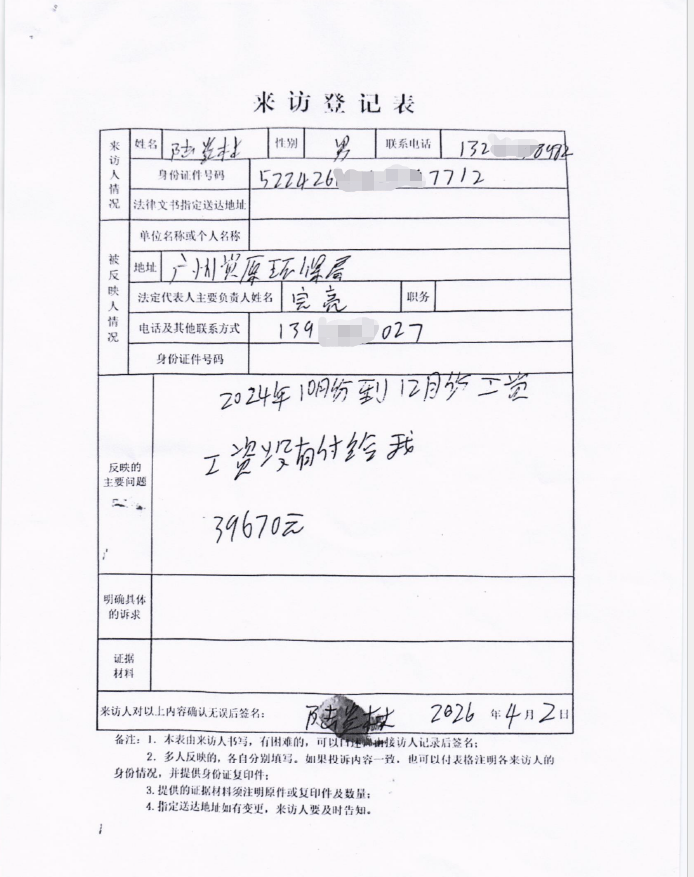 来访登记表
来访人情况
姓名 陆 林 性别 男 联系电话 132 8982
身份证件号码 522426 7712
法律文书指定送达地址
被反映人情况
单位名称或个人名称
地址 广州 原环保局
法定代表人主要负责人姓名 完亮 职务
电话及其他联系方式 139 027
身份证件号码
反映的主要问题
2024年10月份到12月份工资
工资没有付给我
39670元
明确具体的诉求
证据材料
来访人对以上内容确认无误后签名: 陆 林 2026年4月2日
备注:1. 本表由来访人书写,有困难的,可以口述 由接访人记录后签名;
2. 多人反映的,各自分别填写。如果投诉内容一致,也可以付表格注明各来访人的
身份情况,并提供身份证复印件;
3.提供的证据材料须注明原件或复印件及数量;
4.指定送达地址如有变更,来访人要及时告知。